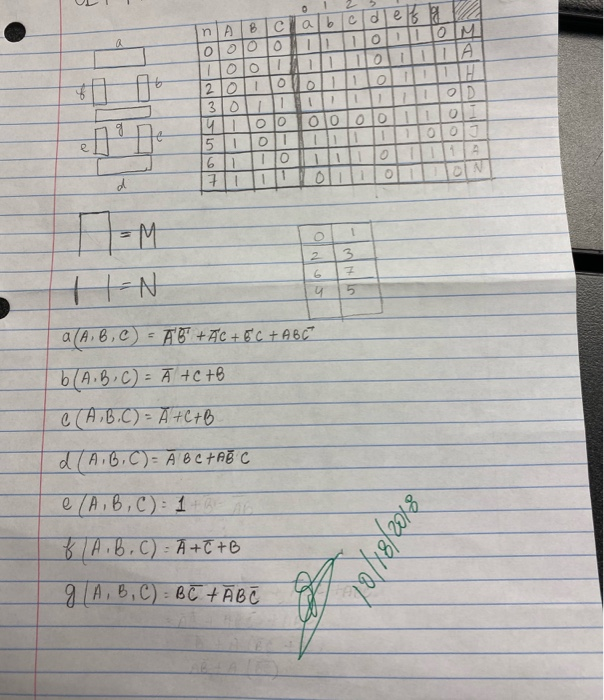 a
f b
g
e c
d
n A B C a b c d e f g
0 0 0 0 1 1 1 0 1 1 0 M
1 0 0 1 1 1 1 0 1 1 1 A
2 0 1 0 0 1 1 0 1 1 1 H
3 0 1 1 1 1 1 1 1 1 0 D
4 1 0 0 0 0 0 0 1 1 0 I
5 1 0 1 1 1 1 1 1 0 0 J
6 1 1 0 1 1 1 0 1 1 1 A
7 1 1 1 0 1 1 0 1 1 0 N
= M
= N
0 1
2 3
6 7
4 5
a(A,B,C) = A̅B̅ + A̅C + B̅C + ABC̅
b(A,B,C) = A̅ + C + B
c(A,B,C) = A̅ + C + B
d(A,B,C) = A̅BC + AB̅C
e(A,B,C) = 1
f(A,B,C) = A̅ + C̅ + B
g(A,B,C) = BC̅ + A̅B̅C
10/18/2018